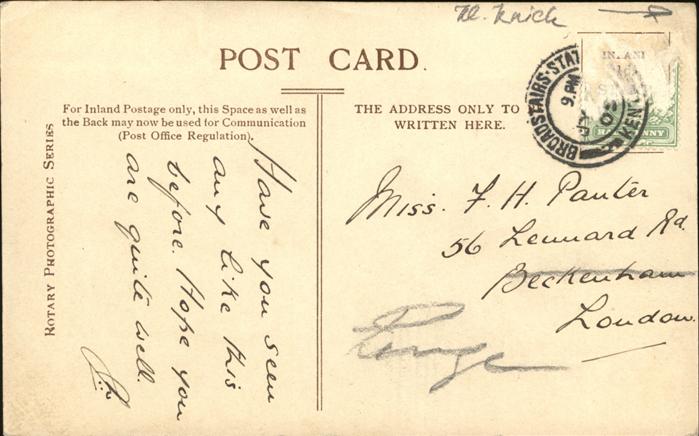 POST CARD.
For Inland Postage only, this Space as well as
the Back may now be used for Communication
(Post Office Regulation).
THE ADDRESS ONLY TO
WRITTEN HERE.
ROTARY PHOTOGRAPHIC SERIES
Have you seen
any like this
before. Hope you
are quite well.
Miss. F. H. Panter
56 Lennard Rd.
Beckenham
London.
Penge
BROADSTAIRS STAT
9. PM
KENT
HALFPENNY